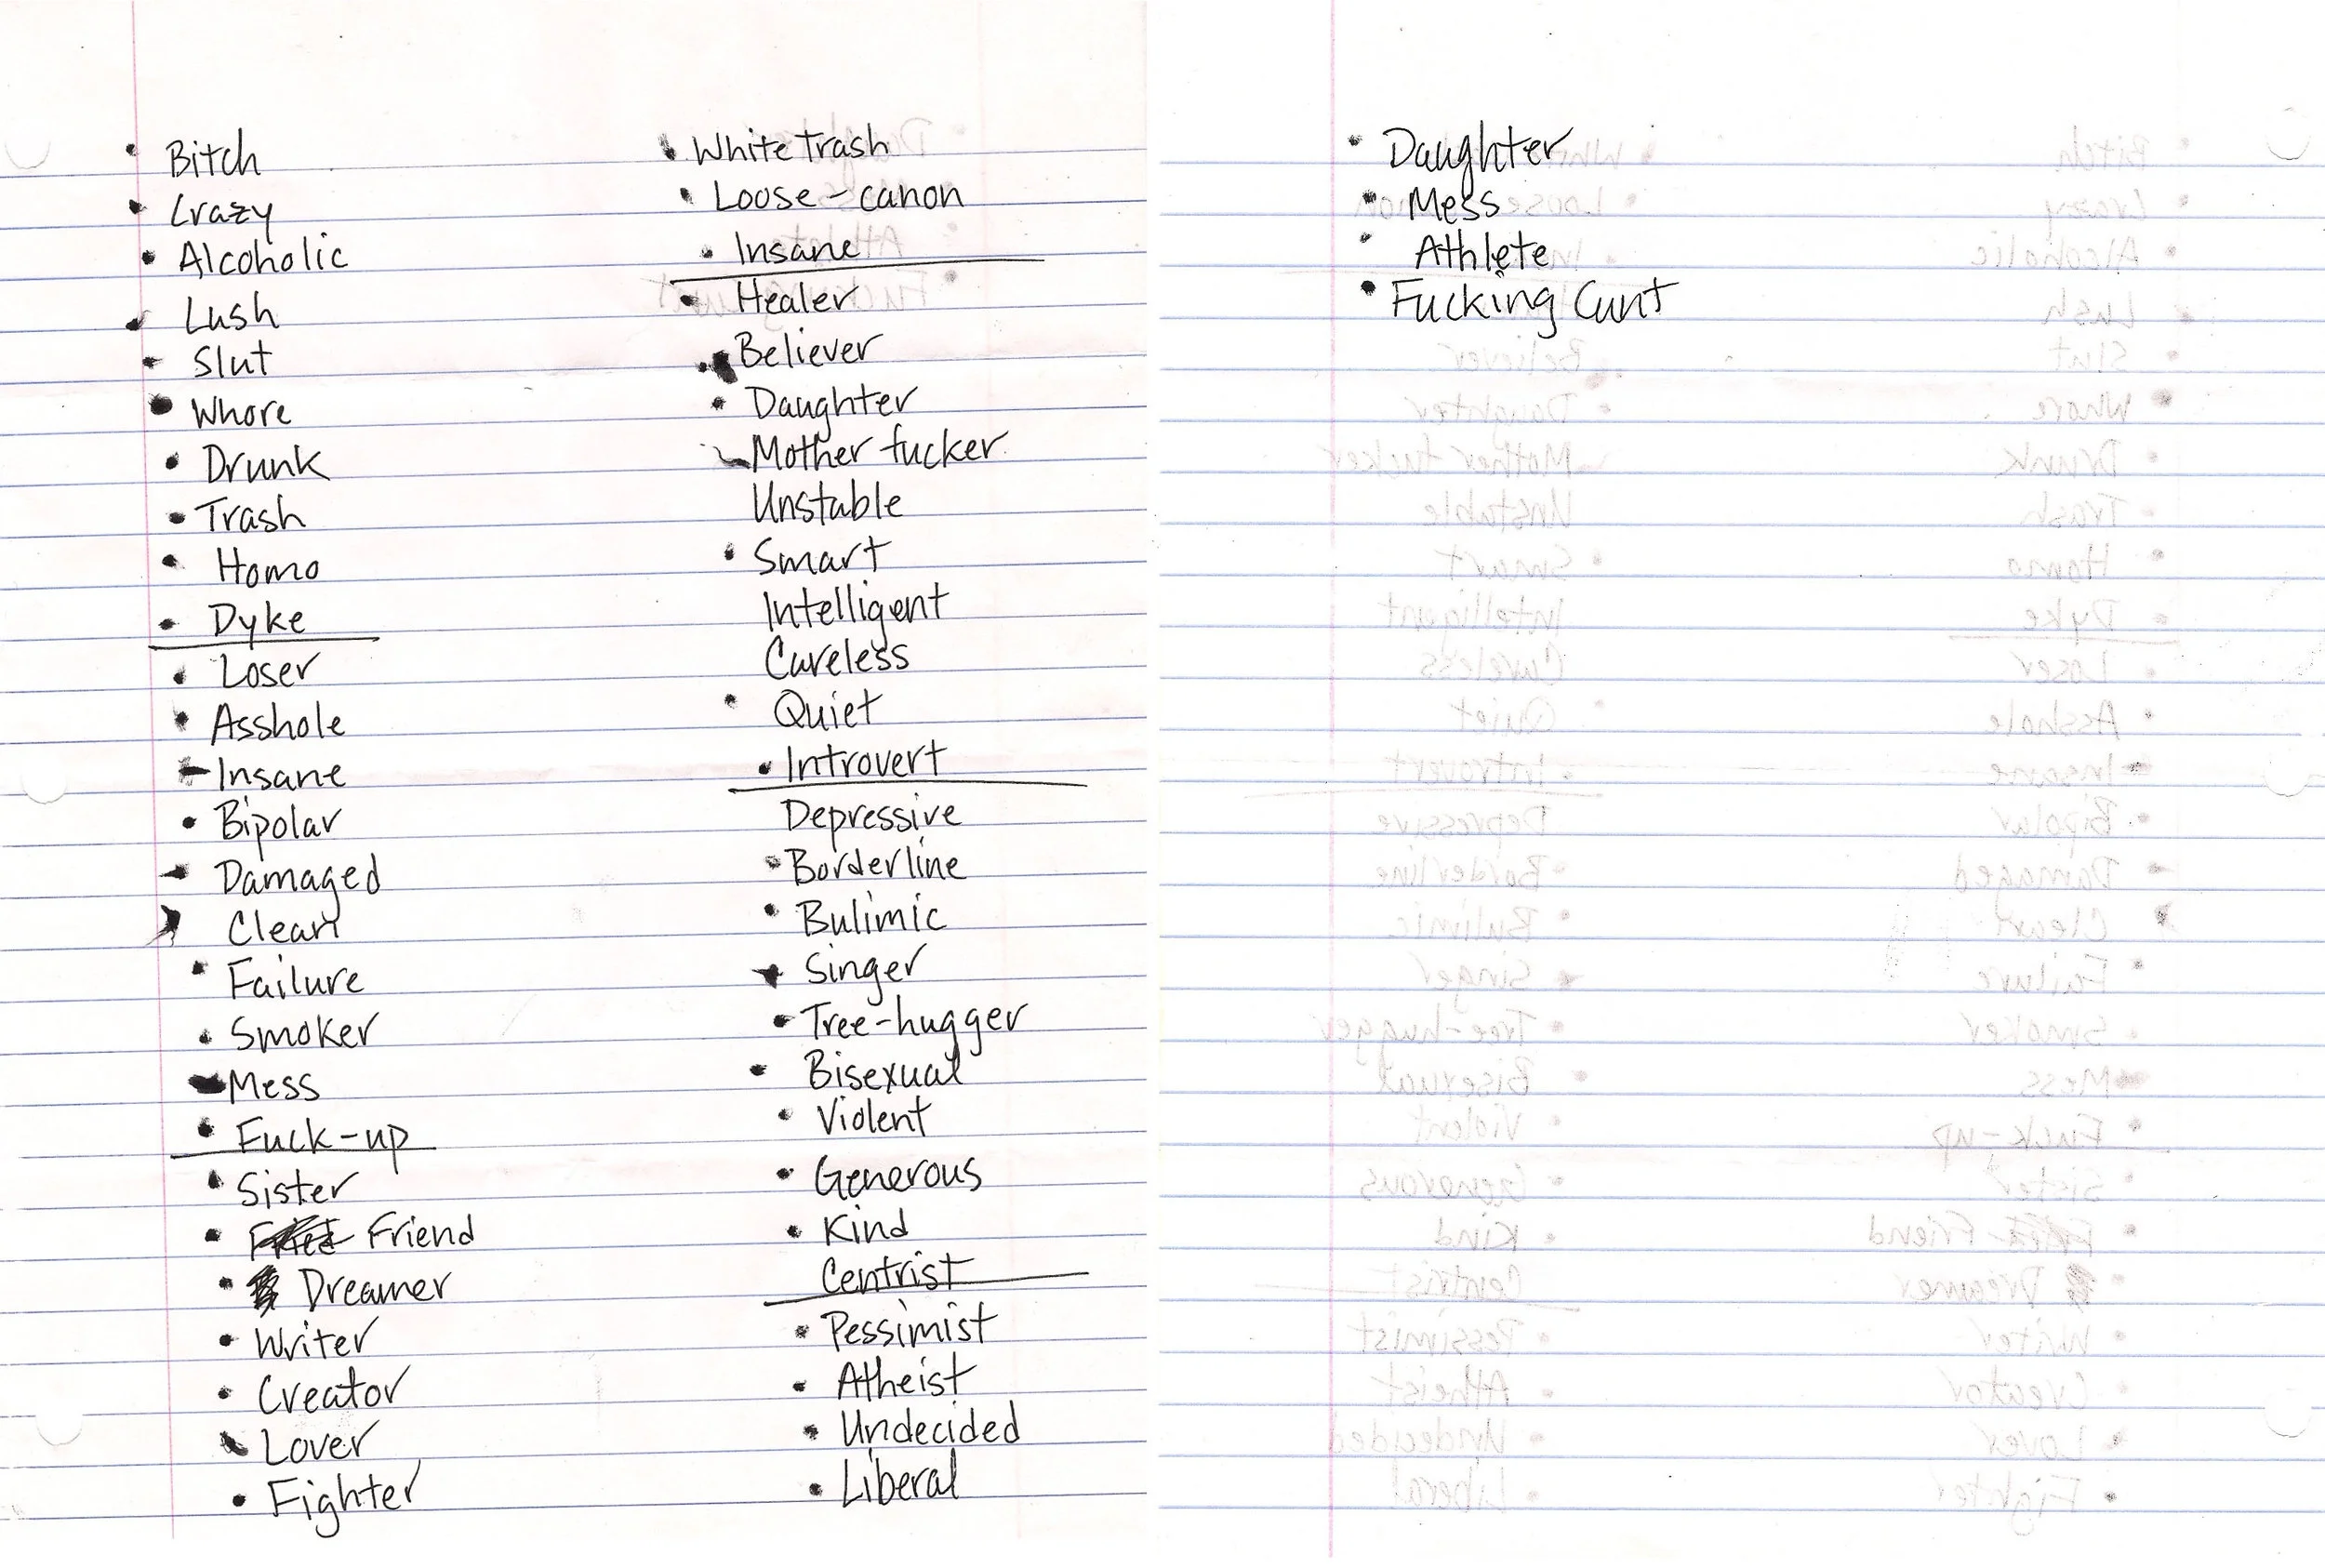 • Bitch
• Crazy
• Alcoholic
• Lush
• Slut
• Whore
• Drunk
• Trash
• Homo
• Dyke
• Loser
• Asshole
• Insane
• Bipolar
• Damaged
• Clean
• Failure
• Smoker
• Mess
• Fuck-up
• Sister
• Friend
• Dreamer
• Writer
• Creator
• Lover
• Fighter
• White Trash
• Loose-canon
• Insane
• Healer
• Believer
• Daughter
• Mother fucker
Unstable
• Smart
Intelligent
Careless
• Quiet
• Introvert
Depressive
• Borderline
• Bulimic
• Singer
• Tree-hugger
• Bisexual
• Violent
• Generous
• Kind
Centrist
• Pessimist
• Atheist
• Undecided
• Liberal
• Daughter
• Mess
• Athlete
• Fucking Cunt